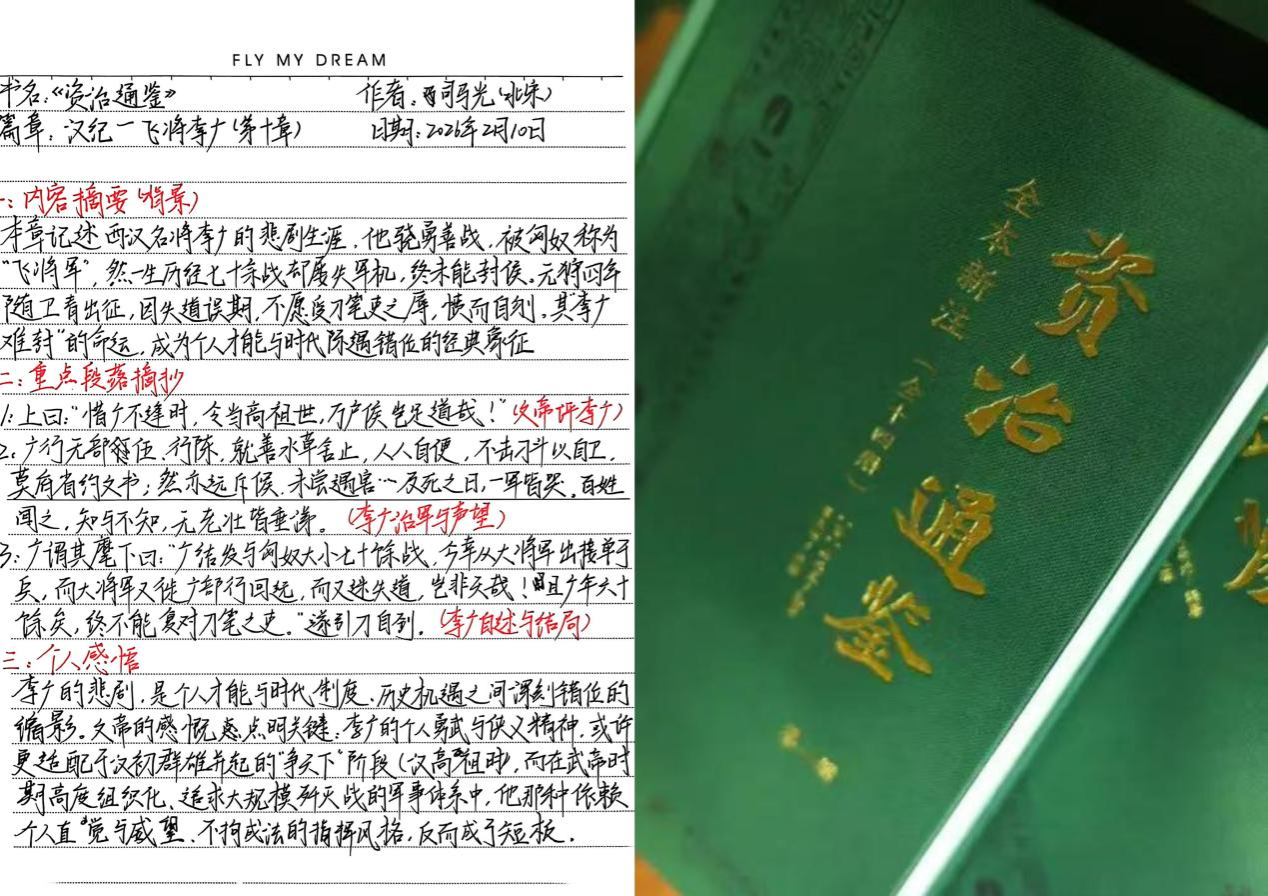 FLY MY DREAM
书名:《资治通鉴》 作者:司马光(北宋)
篇章:汉纪一飞将李广(第十章) 日期:2026年2月10日
一:内容摘要(背景)
本章记述西汉名将李广的悲剧生涯,他骁勇善战,被匈奴称为
"飞将军",然一生历经七十余战却屡失军机,终未能封侯。元狩四年
随卫青出征,因失道误期,不愿受刀笔吏之辱,愤而自刎。其"李广
难封"的命运,成为个人才能与时代际遇错位的经典象征
二:重点段落摘抄
1:上曰:"惜广不逢时,令当高祖世,万户侯岂足道哉!"(文帝评李广)
2。广行无部伍、行陈,就善水草舍止,人人自便,不击刁斗以自卫,
莫府省约文书;然亦远斥候、未尝遇害…及死之日,一军皆哭。百姓
闻之,知与不知,无老壮皆垂涕。(李广治军与声望)
3:广谓其麾下曰:"广结发与匈奴大小七十馀战,今幸从大将军出接单于
兵,而大将军又徙广部行回远,而又迷失道,岂非天哉!且广年六十
馀矣,终不能复对刀笔之吏。"遂引刀自刭。(李广自述与结局)
三:个人感悟
李广的悲剧,是个人才能与时代、制度、历史机遇之间深刻错位的
缩影。文帝的感慨点明关键:李广的个人勇武与侠义精神,或许
更适配于汉初群雄并起的"争天下"阶段(汉高祖时),而在武帝时
期高度组织化、追求大规模歼灭战的军事体系中,他那种依赖
个人直觉与威望、不拘成法的指挥风格,反而成了短板。
资治通鉴
全本新注(全十四册)
第一册